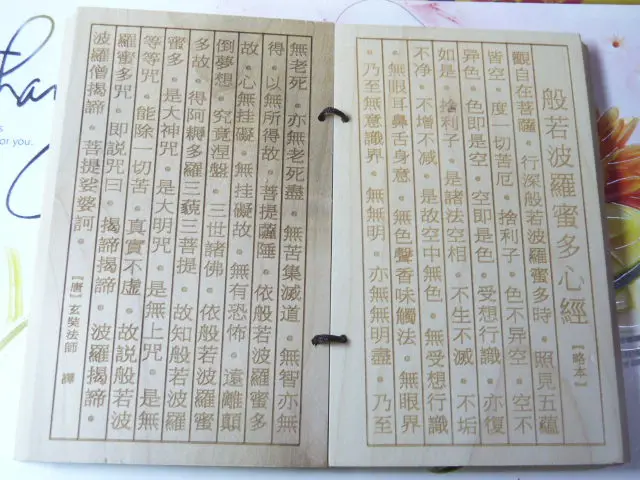 般若波羅蜜多心經『略本』
觀自在菩薩。行深般若波羅蜜多時。照見五蘊
皆空。度一切苦厄。捨利子。色不异空。空不
异色。色即是空。空即是色。受想行識。亦復
如是。捨利子。是諸法空相。不生不滅。不垢
不净。不增不减。是故空中無色。無受想行識
。無眼耳鼻舌身意。無色聲香味觸法。無眼界
。乃至無意識界。無無明。亦無無明盡。乃至
無老死。亦無老死盡。無苦集滅道。無智亦無
得。以無所得故。菩提薩埵。依般若波羅蜜多
故。心無挂礙。無挂礙故。無有恐怖。遠離顛
倒夢想。究竟涅盤。三世諸佛。依般若波羅蜜
多故。得阿耨多羅三藐三菩提。故知般若波羅
蜜多。是大神咒。是大明咒。是無上咒。是無
等等咒。能除一切苦。真實不虛。故說般若波
羅蜜多咒。即說咒曰。揭諦揭諦。波羅揭諦。
波羅僧揭諦。菩提娑婆訶。
『唐』玄奘法師 譯
for you.